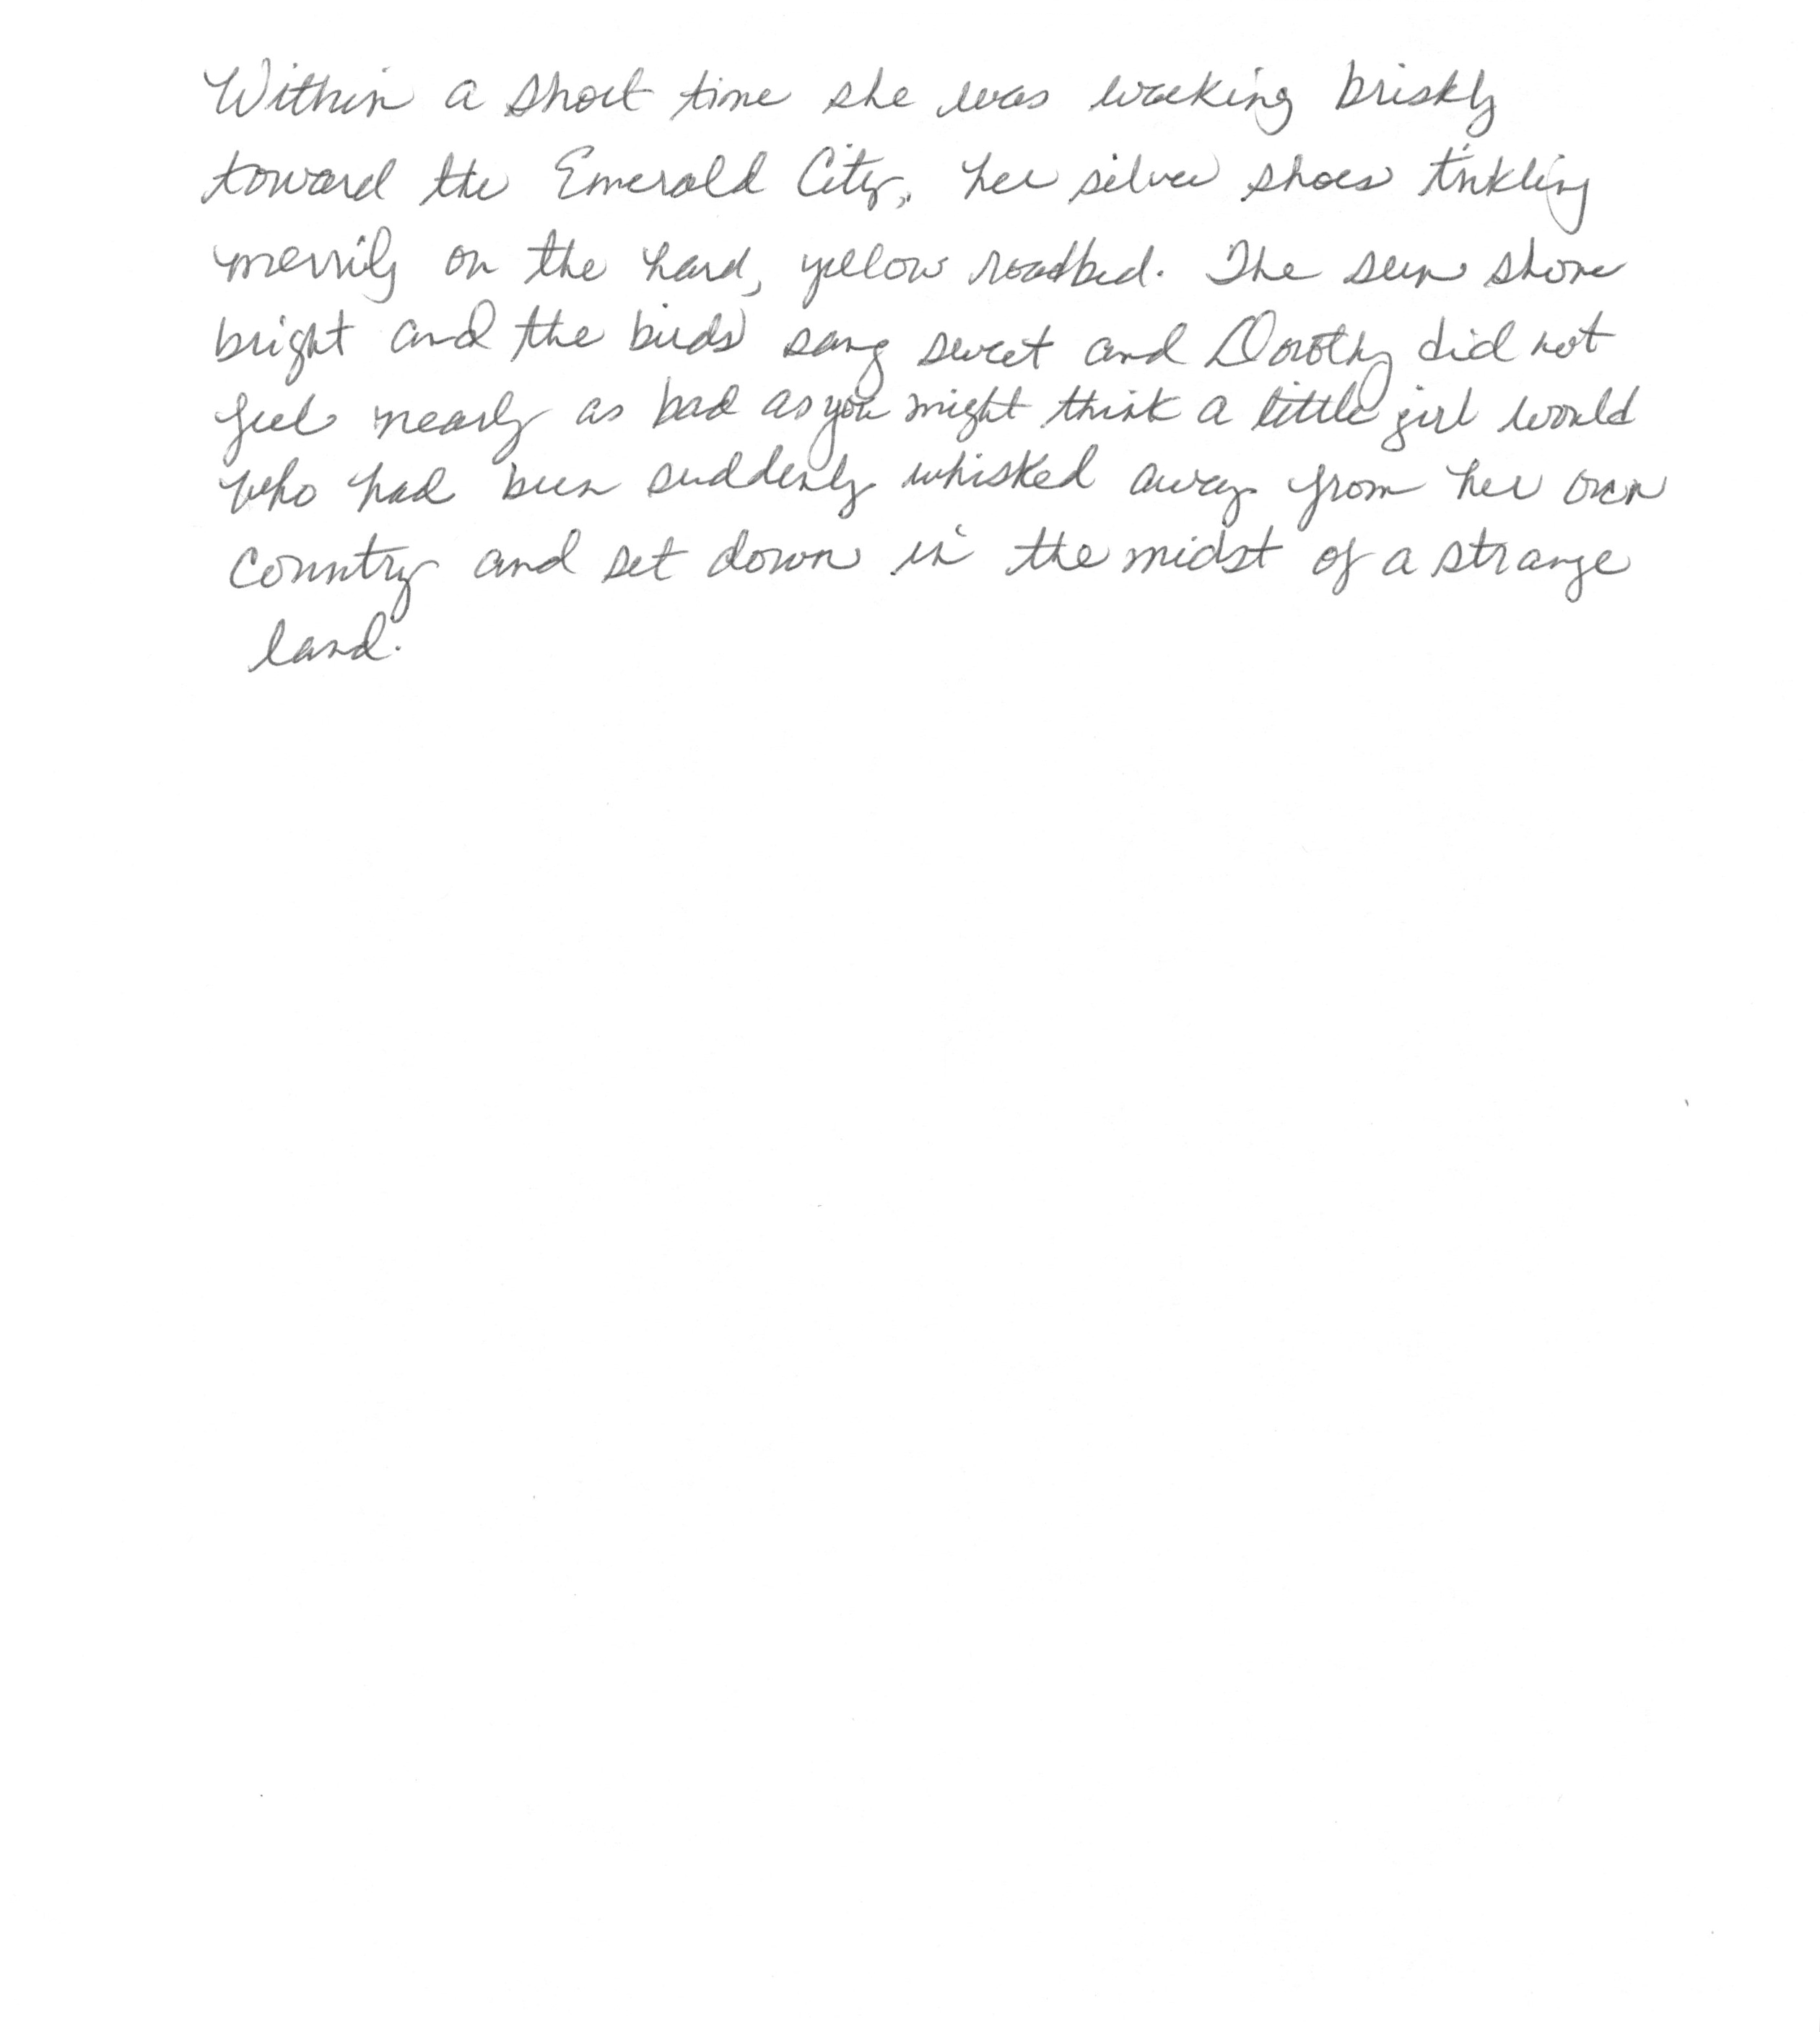 Within a short time she was walking briskly
toward the Emerald City, her silver shoes tinkling
merrily on the hard, yellow roadbed. The sun shone
bright and the birds sang sweet and Dorothy did not
feel nearly as bad as you might think a little girl would
who had been suddenly whisked away from her own
country and set down in the midst of a strange
land.